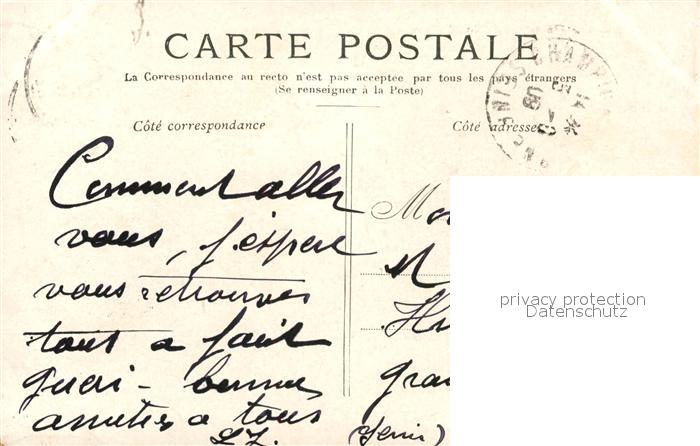 CARTE POSTALE
La Correspondance au recto n'est pas acceptée par tous les pays étrangers
(Se renseigner à la Poste)
Côté correspondance
Côté adresse
Comment aller
vous, j'espere
vous retrouver
tout a fait
gueri - bonnes
amities a tous
Mo
M
gra
privacy protection
Datenschutz